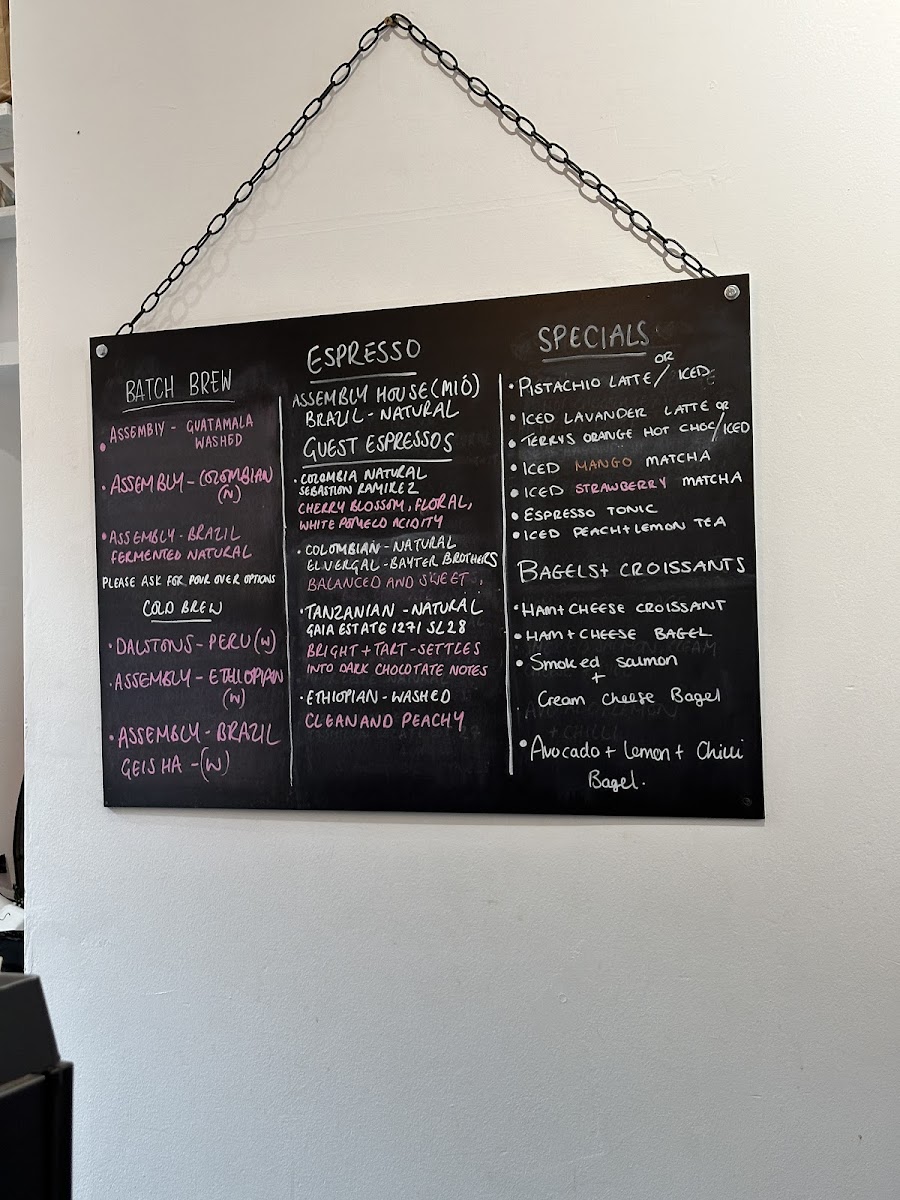 BATCH BREW
• ASSEMBLY - GUATAMALA
WASHED
• ASSEMBLY - COLOMBIAN
(N)
• ASSEMBLY - BRAZIL
FERMENTED NATURAL
PLEASE ASK FOR POUR OVER OPTIONS
COLD BREW
• DALSTONS - PERU (W)
• ASSEMBLY - ETHIOPIAN
(W)
• ASSEMBLY - BRAZIL
GEISHA - (W)
ESPRESSO
ASSEMBLY HOUSE (MIÓ)
BRAZIL - NATURAL
GUEST ESPRESSOS
• COLOMBIA NATURAL
SEBASTION RAMIREZ
CHERRY BLOSSOM, FLORAL,
WHITE POMELO ACIDITY
• COLOMBIAN - NATURAL
EL VERGAL - BAYTER BROTHERS
BALANCED AND SWEET,
• TANZANIAN - NATURAL
GAIA ESTATE 1271 SL28
BRIGHT + TART - SETTLES
INTO DARK CHOCOTATE NOTES
• ETHIOPIAN - WASHED
CLEAN AND PEACHY
SPECIALS
• PISTACHIO LATTE OR / ICED
• ICED LAVANDER LATTE
• TERRYS ORANGE HOT CHOC OR / ICED
• ICED MANGO MATCHA
• ICED STRAWBERRY MATCHA
• ESPRESSO TONIC
• ICED PEACH + LEMON TEA
BAGELS + CROISSANTS
• HAM + CHEESE CROISSANT
• HAM + CHEESE BAGEL
• Smoked salmon
+
Cream cheese Bagel
• Avocado + Lemon + Chilli
Bagel.